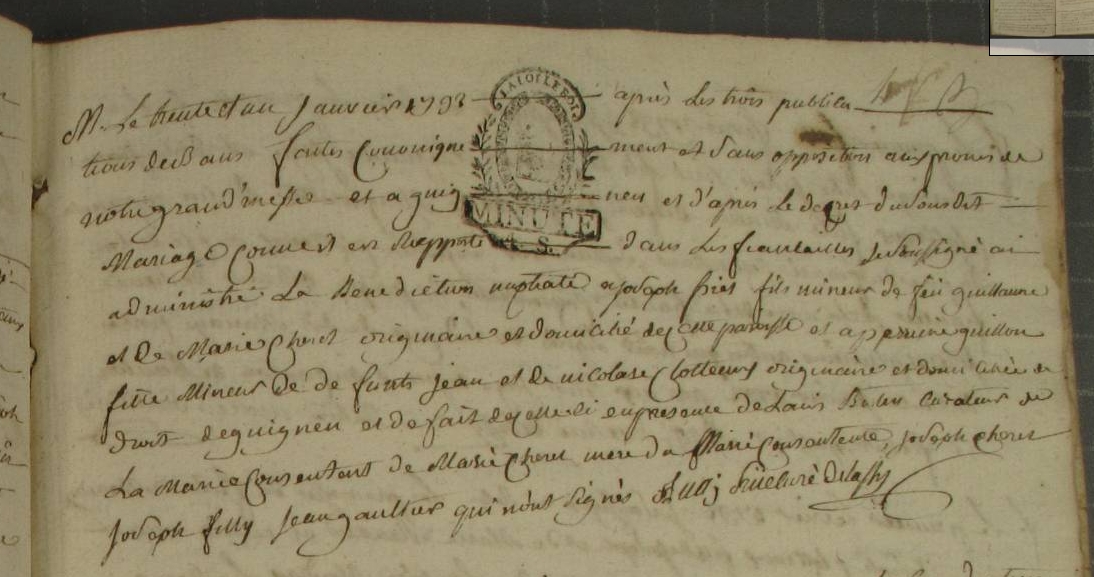 M. Le trente et un Janvier 1793 après les trois publica
LA LOI LE ROI
tions de Bans faites Canonique ment et sans opposition au prones de
notre grand'messe et a guig nen et d'apres le decret du Soudit
MINUTE
Mariage Couvert et Rapporté dans les fiancailles Je Soussigné ai
administré La Benediction nuptiale a joseph fres fils mineur de feu guillaume
et de Marie Cheret originaire et domicilié de cette paroisse et a perrine guillou
fille Mineur de defunts jean et de nicolase Cotteux originaire et domiciliée de
droit de guignen et de fait de celle ci en presence de Louis curateur de
La Mariée Consentant de Marie Cheret mere du Marié Consentente, joseph Cheret
joseph filly jean gaultier qui n'ont Signés